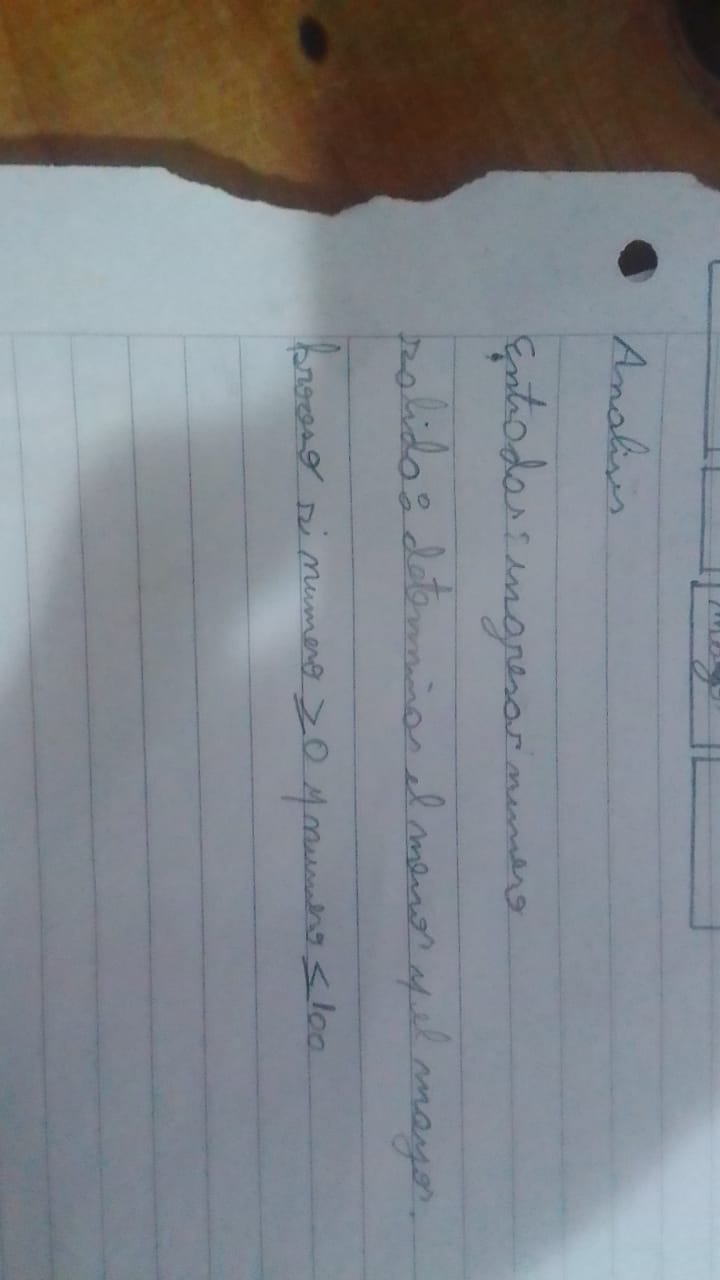 Analisis
Entradas: ingresar numero
salida: determinar el menor y el mayor.
proceso si numero ≥ 0 y numero ≤ 100